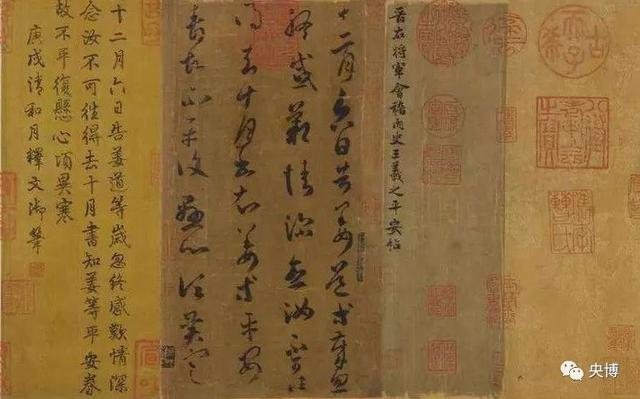 古希天子
八徵耄念之寶
晉右將軍會稽內史王羲之平安帖
十二月六日告姜道等歲忽
終感歎情深念汝不可往
得去十月書知姜等平安
眷故不平復懸心頃異寒
十二月六日告姜道等歲忽終感歎情深
念汝不可往得去十月書知姜等平安眷
故不平復懸心頃異寒
庚戌清和月釋文御筆
央博